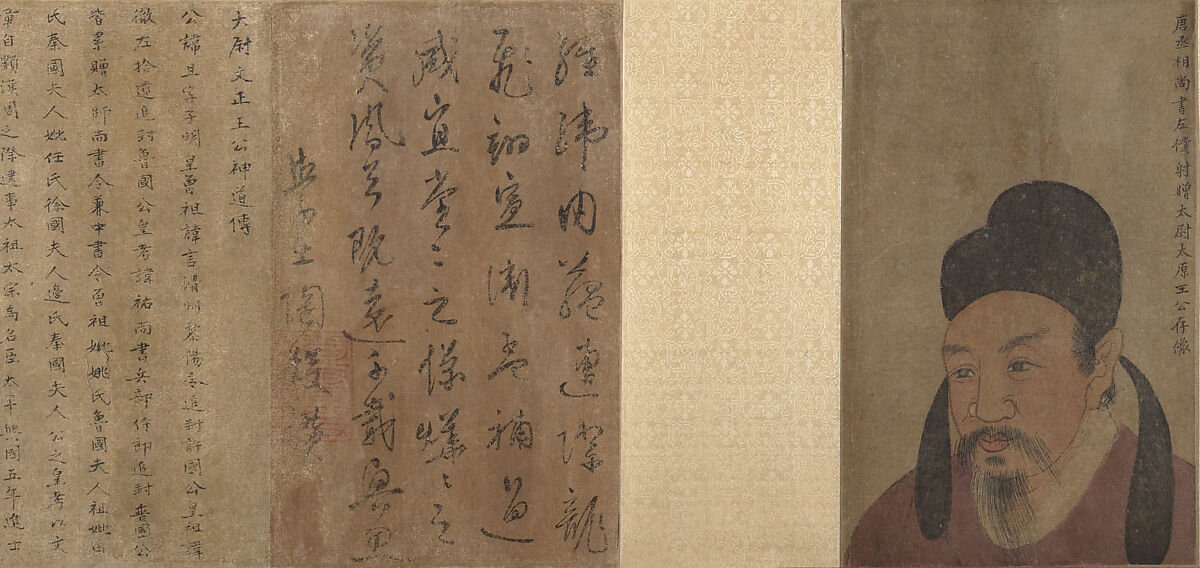 唐丞相尚書左僕射贈太尉太原王公存像
經緯田蘊連際龍
飛詞宣淵孟補過
咸宜堂之之儀蟻之之
資風云既遠千載與思
陶縠讚
大尉文正王公神道傳
公諱旦字子明皇曾祖諱言滑州黎陽令追封許國公皇祖諱
徹左拾遺追封魯國公皇考諱祐尚書兵部侍郎追封晉國公
皆累贈太師尚書令兼中書令曾祖妣姚氏魯國夫人祖妣田
氏秦國夫人妣任氏徐國夫人邊氏秦國夫人公之皇考以文
章自顯漢周之際逮事太祖太宗為名臣太平興國五年進士